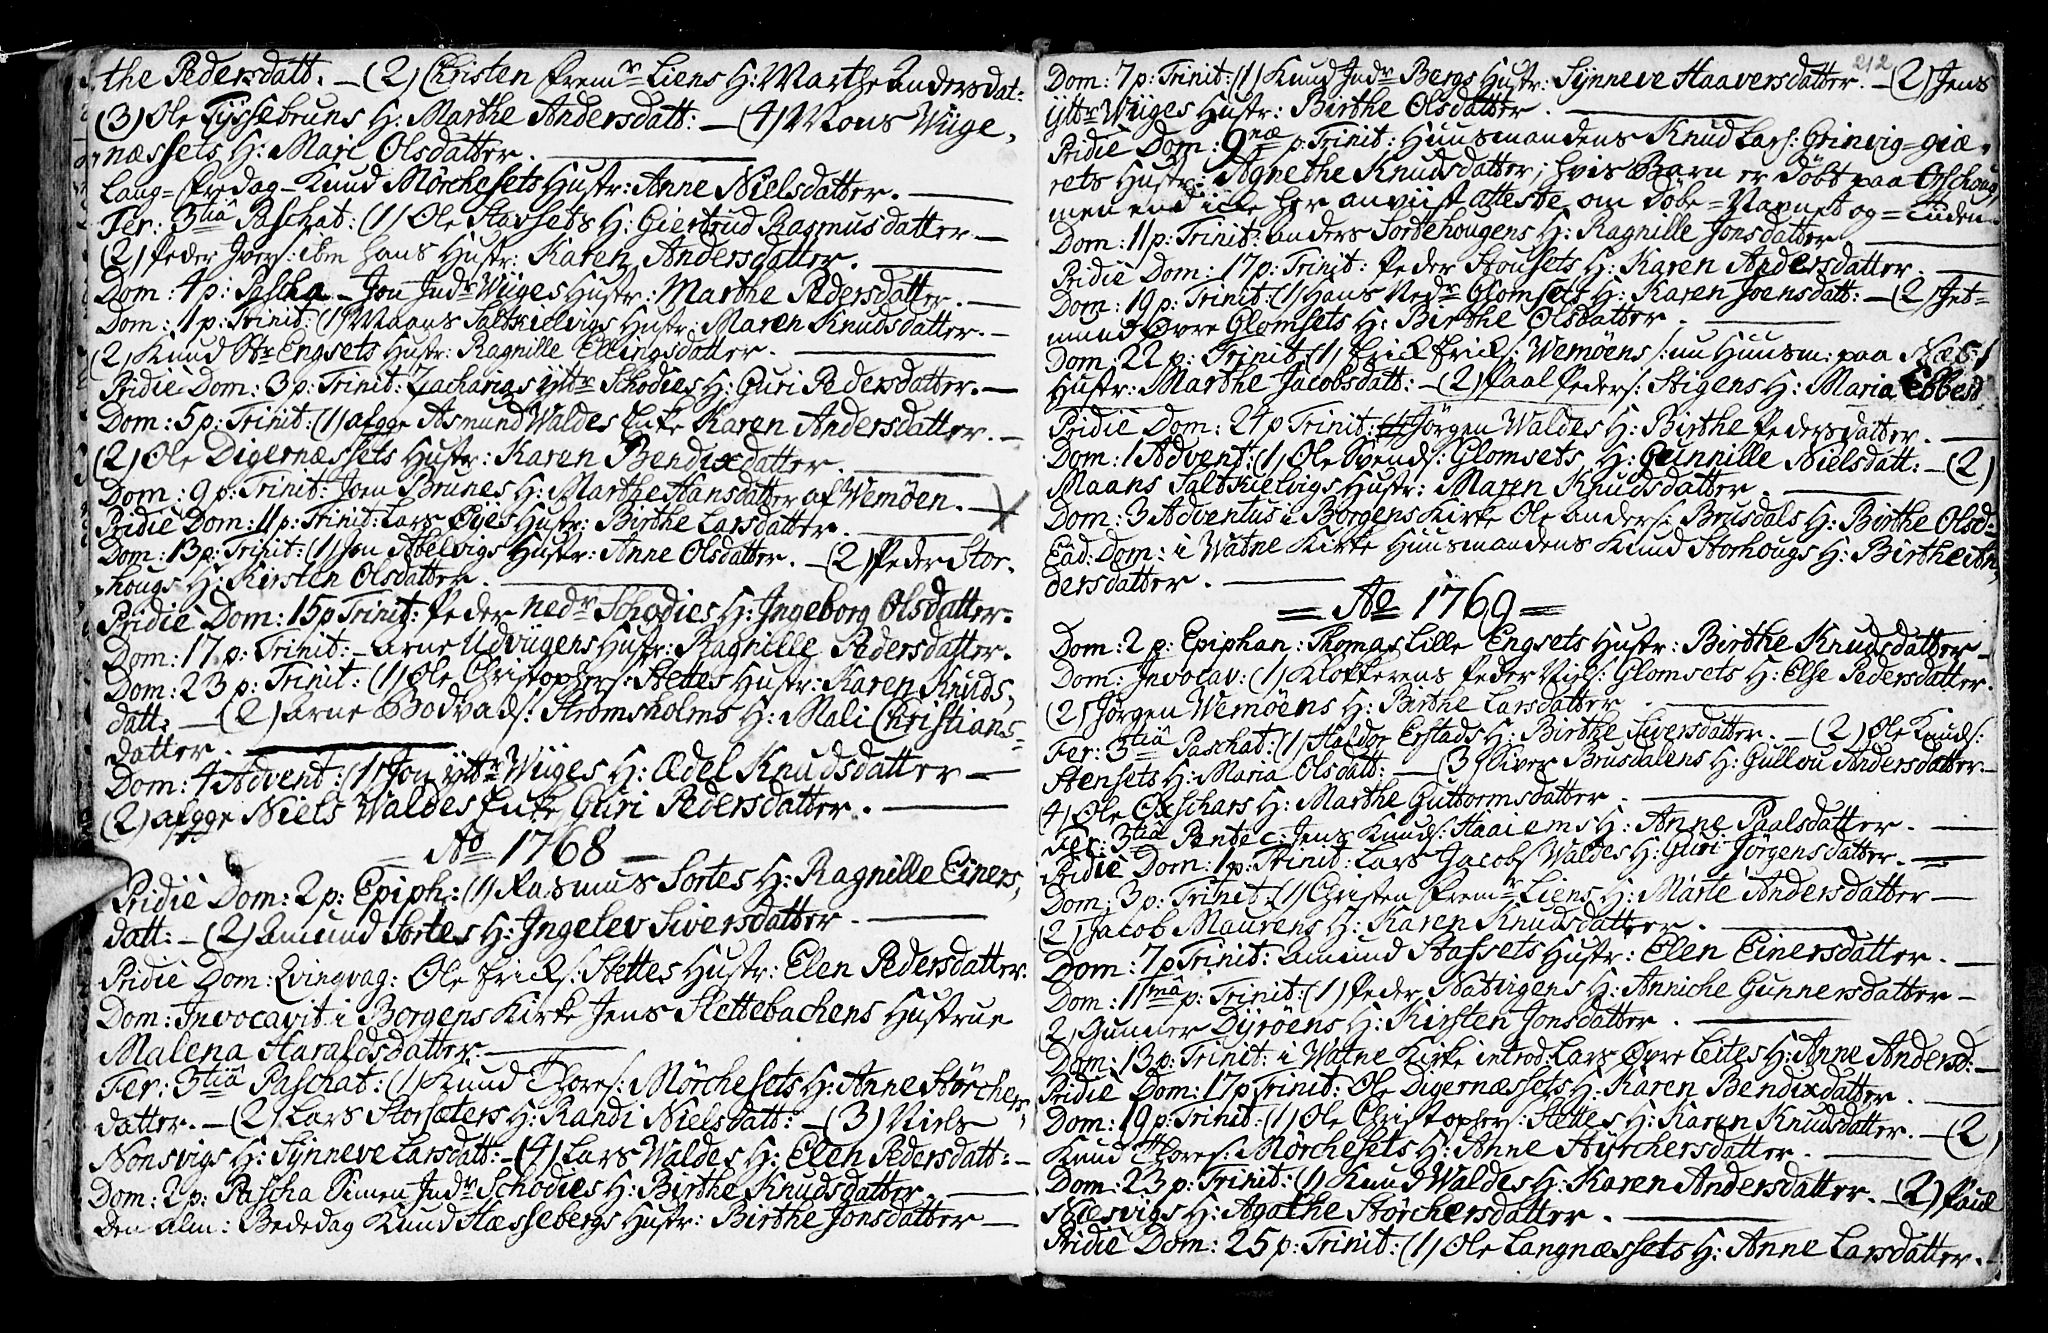 the Pedersdatt. – (2) Christen fremr Liens H: Marthe Andersdat:
(3) Ole Tyssebruns H: Marthe Andersdatt: – (4) Mons Wiige,
næssets H: Mari Olsdatter.
Lang=fredag – Knud Mörchesets Hustr: Anne Nielsdatter.
Fer: 3tia Paschat: (1) Ole Stavsets H: Giertrud Rasmusdatter –
(2) Peder Ivers: ibm hans Hustr: Karen Andersdatter.
Dom: 4 p: Pascha – Jon Indr Wiiges Hustr: Marthe Pedersdatter. –
Dom: 1 p: Trinit: (1) Maans Saltkielvigs Hustr: Maren Knudsdatter. –
(2) Knud Str Engsets Hustr: Ragnille Ellingsdatter.
Pridie Dom: 3 p: Trinit: Zacharias yttr Schodies H: Guri Pedersdatter. –
Dom: 5 p: Trinit: (1) afgge Asmund Waldes Enke Karen Andersdatter. –
(2) Ole Digernæssets Hustr: Karen Bendixdatter.
Dom: 9 p: Trinit: Joen Brunes H: Marthe Hansdatter af Wemöen. –
Pridie Dom: 11 p: Trinit: Lars Öyes Hustr: Birthe Larsdatter.
Dom: 13 p: Trinit: (1) Jon Abelvigs Hustr: Anne Olsdatter. – (2) Peder Stor,
hougs H: Kirsten Olsdatter.
Pridie Dom: 15 p Trinit: Peder nedr Schodies H: Ingeborg Olsdatter.
Dom: 17. p: Trinit: – Arne Udviigens Hustr: Ragnille Pedersdatter.
Dom: 23 p: Trinit: (1) Ole Christophers: Stettes Hustr: Karen Knuds,
datt: – (2) Arne Bodvads: Strømsholms H: Mali Christians=
datter.
Dom: 4 Advent: (1) Jon yttr Wiiges H: Ædel Knudsdatter –
(2) afgge Niels Waldes Enke Guri Pedersdatter.
– Ao 1768 –
Pridie Dom: 2 p: Epiph: (1) Rasmus Sortes H: Ragnille Einers,
datt: – (2) Amund Sortes H: Ingelev Siversdatter
Pridie Dom: Qvinqvag: Ole Ericks: Stettes Hustr: Elen Pedersdatter.
Dom: Invocavit i Borgens Kirke Jens Stettebachens Hustrue
Malena Haraldsdatter.
Fer: 3tia Paschat: (1) Knud Thores: Mörchesets H: Anne Störchers,
datter. – (2) Lars Storsæters H: Randi Nielsdatt: – (3) Niels
Nonsvigs H: Synneve Larsdatt: – (4) Lars Waldes H: Elen Pedersdatt: –
Dom: 2 p: Pascha Simen Indr Schodies H: Birthe Knudsdatter.
Den Alm: Bededag Knud Hæssebergs Hustr: Birthe Jonsdatter –
212
Dom: 7 p: Trinit: (1) Knud Indr Bergs Hustr: Synneve Haaversdatter. – (2) Jens
yttr Wiiges Hustr: Birthe Olsdatter.
Pridie Dom: 9næ p: Trinit: Huusmandens Knud Lars: Grinvig=giæ,
rets Hustr: Agnethe Knudsdatter; hvis Barn er döbt paa Olschoug
men end icke her anviist atteste, om Döbe=Navnet og =Tiden.
Dom: 11 p: Trinit: Anders Sortehougens H: Ragnille Jonsdatter
Pridie Dom: 17 p: Trinit: Peder Skousets H: Karen Andersdatter.
Dom: 19 p: Trinit: (1) Hans Nedr Glomsets H: Karen Joensdatt: – (2) Jet=
mund Øvre Glomsets H: Birthe Olsdatter.
Dom: 22 p: Trinit: (1) Erick Ericks: Wemöens /: nu Huusm: paa Næs:/
Hustr: Marthe Jacobsdatt: – (2) Paal Peders: Stigens H: Maria Ebbesd:
Pridie Dom: 24 p Trinit: Jörgen Waldes H: Birthe Pedersdatter.
Dom: 1 Advent: (1) Ole Svends: Glomsets H: Gunnille Nielsdatt: – (2)
Maans Saltkielvigs Hustr: Maren Knudsdatter.
Dom: 3 Adventus i Borgens Kirke Ole Anders: Brusdals H: Birthe Olsd:
Ead: Dom: i Watne Kirke Huusmandens Knud Storhougs H: Birthe An,
dersdatter.
= Ao 1769 =
Dom: 2 p: Epiphan: Thomas Lille Engsets Hustr: Birthe Knudsdatter –
Dom: Invocav: (1) Klokkerens Peder Niels: Glomsets H: Else Pedersdatter.
(2) Jörgen Wemöens H: Birthe Larsdatter
Fer: 3tia Paschat: (1) Haldor Erstads H: Birthe Siversdatter. – (2) Ole Knuds:
Stensets H: Maria Olsdatt: – (3) Siver Brusdalens H: Gullou Andersdatter. –
4) Ole Oxschars H: Marthe Guttormsdatter.
Fer: 3tia Pentec: Jens Knuds: Haaiems H: Anne Paalsdatter.
Pridie Dom: 1 p: Trinit: Lars Jacobs: Waldes H: Guri Jörgensdatter. –
Dom: 3 p: Trinit: (1) Christen fremr Liens H: Marte Andersdatter –
(2) Jacob Maurens H: Karen Knudsdatter.
Dom: 7 p Trinit: Amund Stafsets Hustr: Elen Einersdatter.
Dom: 11ma p: Trinit: (1) Peder Natvigens H: Anniche Gunnersdatter –
2) Gunner Dyröens H: Kirsten Jonsdatter.
Dom: 13 p: Trinit: i Watne Kirke introd: Lars Øvre Eites H: Anne Andersd: –
Pridie Dom: 17 p Trinit: Ole Digernæssets H: Karen Bendixdatter.
Dom: 19 p: Trinit: (1) Ole Christophers: Stettes H: Karen Knudsdatter. – (2)
Knud Thores: Mörchesets H: Anne Styrchersdatter.
Dom: 23 p: Trinit: (1) Knud Waldes H: Karen Andersdatter. – (2) Poul
Næsvigs H: Agathe Störchersdatter.
Pridie Dom: 25 p: Trinit: (1) Ole Langnæssets H: Anne Larsdatter. –